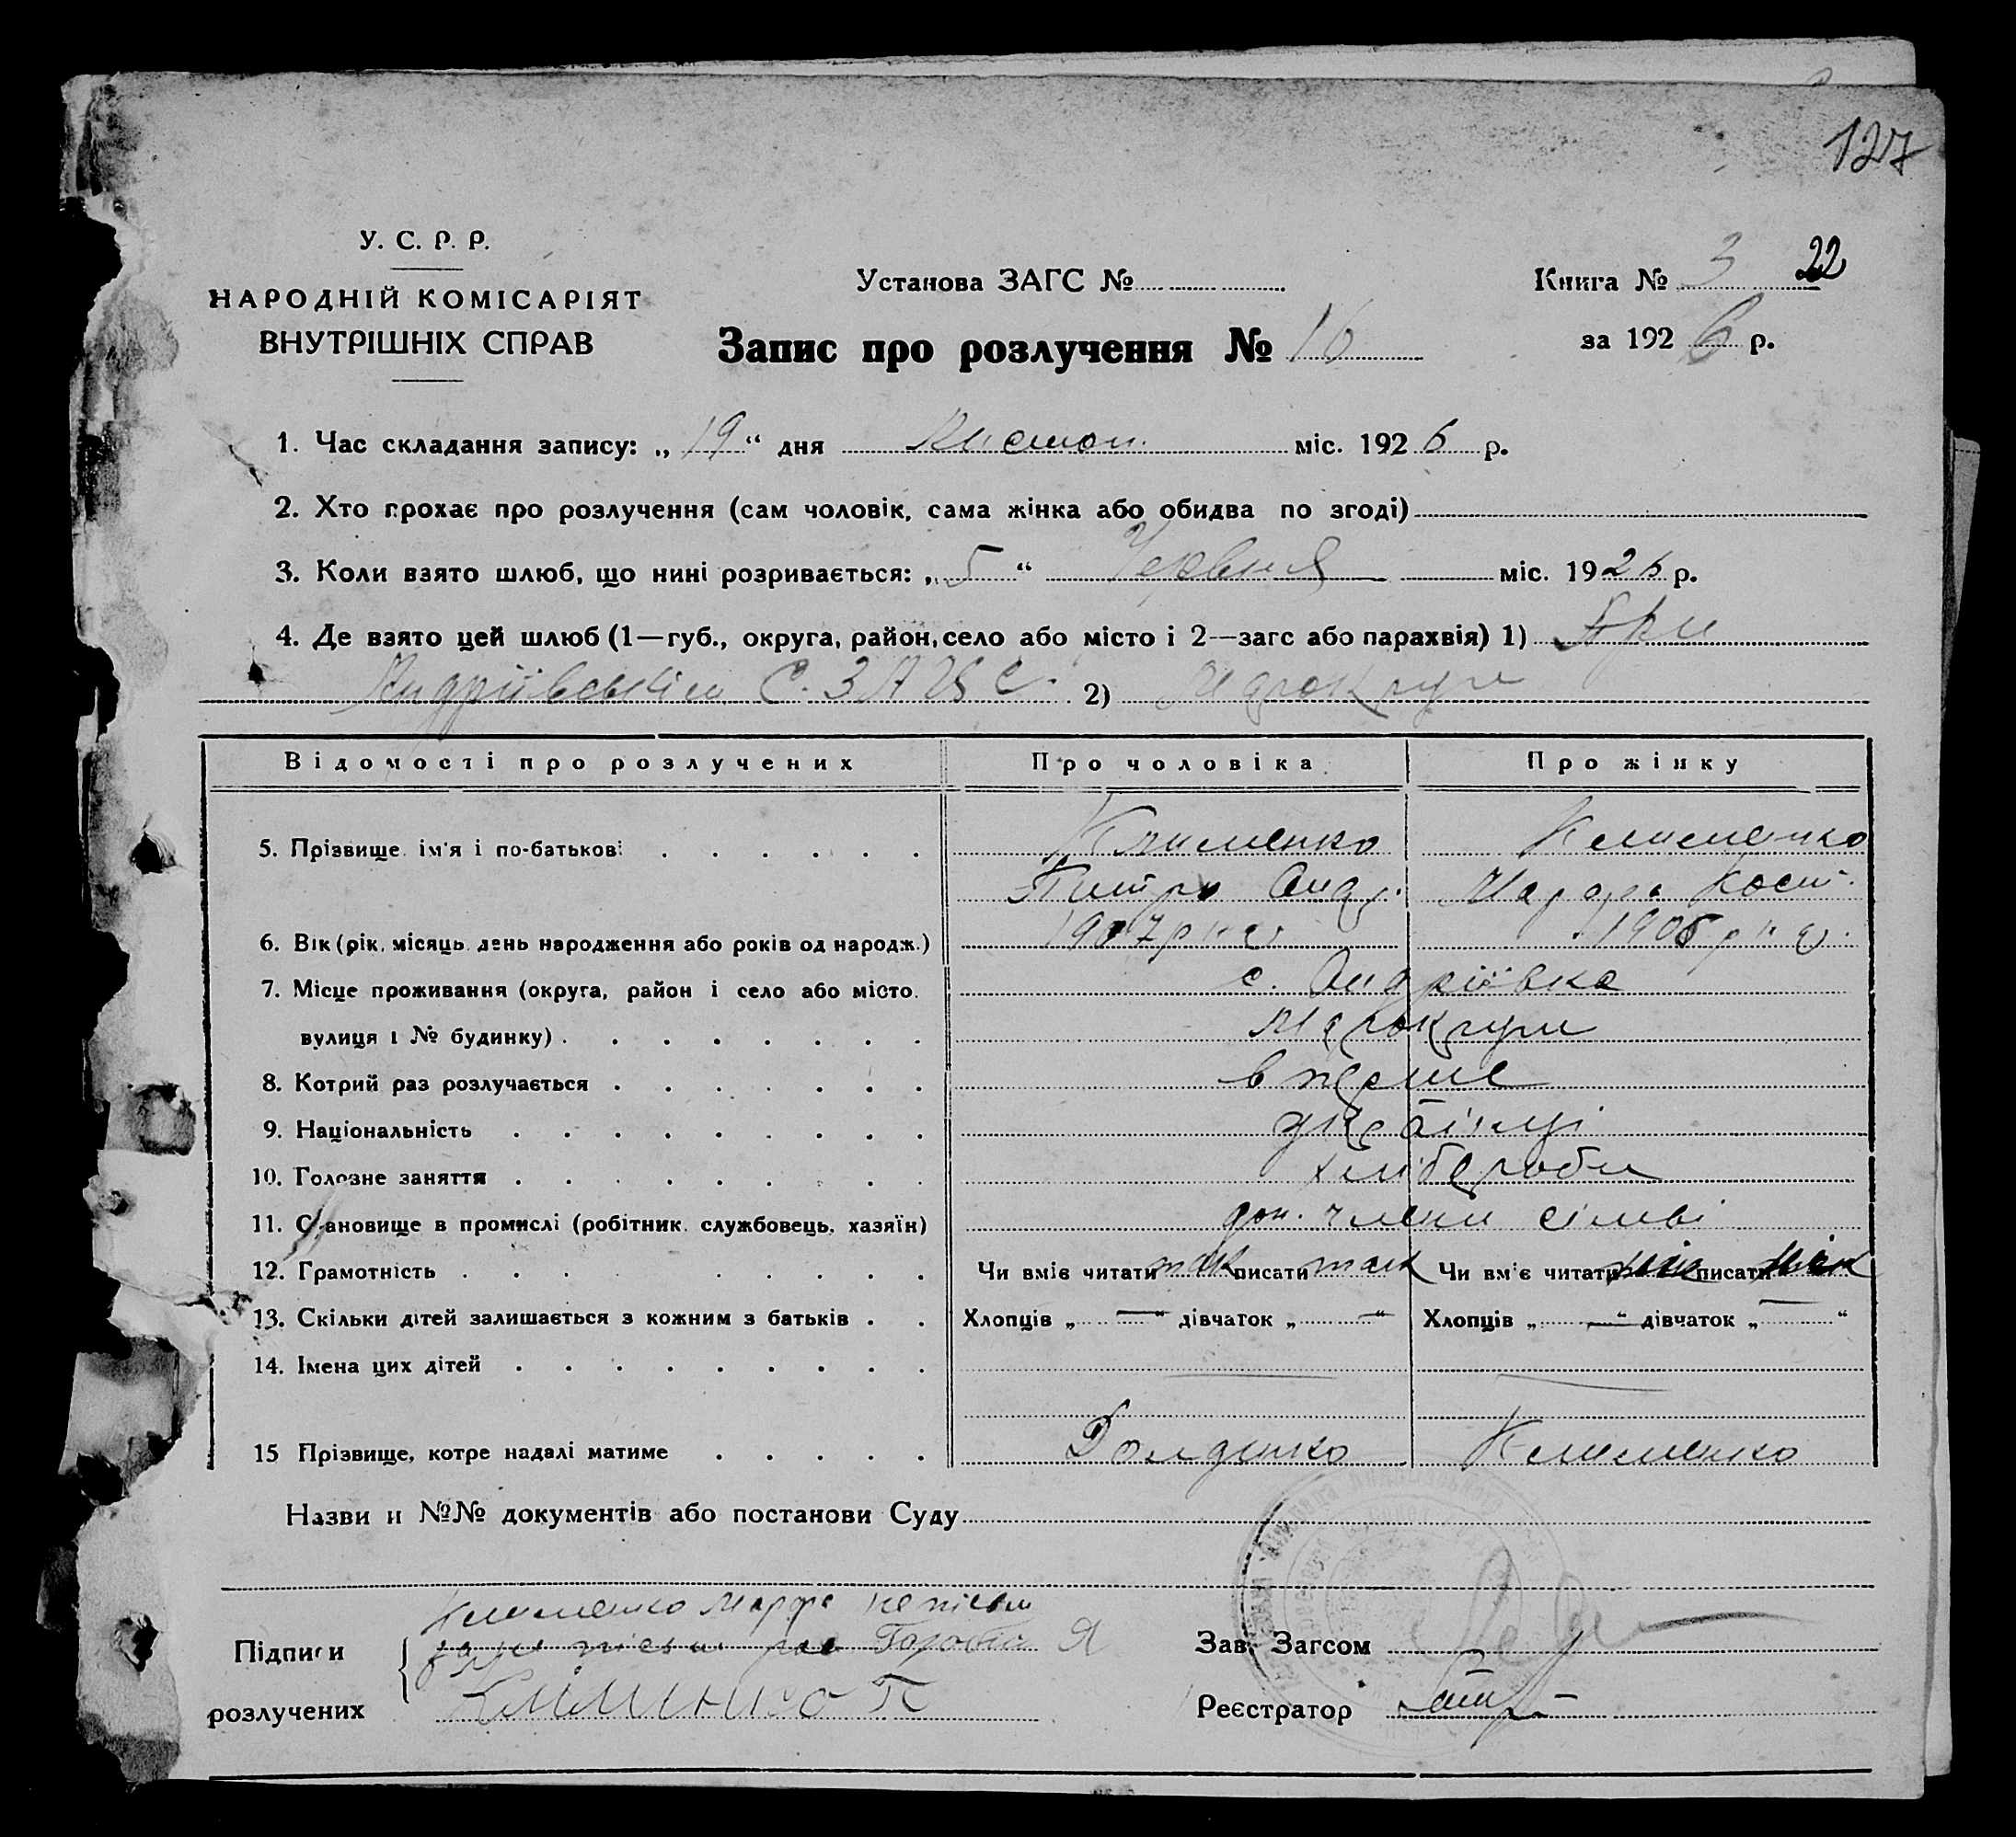 127
У. С. Р. Р.
НАРОДНІЙ КОМІСАРІЯТ
ВНУТРІШНІХ СПРАВ
Установа ЗАГС №
Книга № 3 22
за 1926 р.
Запис про розлучення № 16
1. Час складання запису: „ 19 “ дня Листоп. міс. 1926 р.
2. Хто прохає про розлучення (сам чоловік, сама жінка або обидва по згоді)
3. Коли взято шлюб, що нині розривається: „ 5 “ Червня міс. 1926 р.
4. Де взято цей шлюб (1—губ., округа, район, село або місто і 2—загс або парахвія) 1) При
Андріївськім С. ЗАГС. 2) Марокруги
Відомості про розлучених Про чоловіка Про жінку
5. Прізвище ім'я і по-батькові Клименко Клименко
Питро Андр. Марфа Кост.
6. Вік (рік, місяць день народження або років од народж.) 1907 р н 1905 р н
7. Місце проживання (округа, район і село або місто. с. Андріївка
вулиця і № будинку) Марокруги
8. Котрий раз розлучається вперше
9. Національність українці
10. Головне заняття хлібороби
11. Становище в промислі (робітник, службовець, хазяїн) доп. члени сімьі
12. Грамотність Чи вміє читати так писати так Чи вміє читати писати
13. Скільки дітей залишається з кожним з батьків Хлопців „ — “ дівчаток „ — “ Хлопців „ — “ дівчаток „ — “
14. Імена цих дітей
15 Прізвище, котре надалі матиме Клименко
Назви и №№ документів або постанови Суду
Клименко Марфа непісьм
Підписи
розлучених Кліминко П
Зав. Загсом
Реєстратор